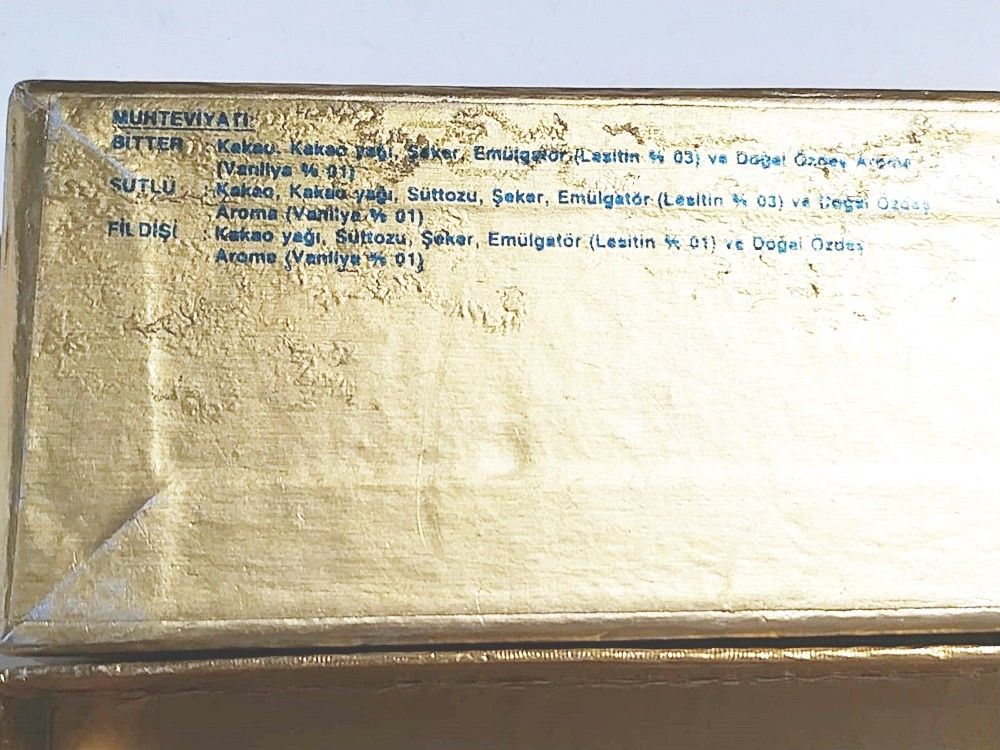 MUHTEVİYATI:
BİTTER : Kakao, Kakao yağı, Şeker, Emülgatör (Lesitin % 03) ve Doğal Özdeş Aroma
(Vanilya % 01)
SÜTLÜ : Kakao, Kakao yağı, Süttozu, Şeker, Emülgatör (Lesitin % 03) ve Doğal Özdeş
Aroma (Vanilya % 01)
FİLDİŞİ : Kakao yağı, Süttozu, Şeker, Emülgatör (Lesitin % 01) ve Doğal Özdeş
Aroma (Vanilya % 01)